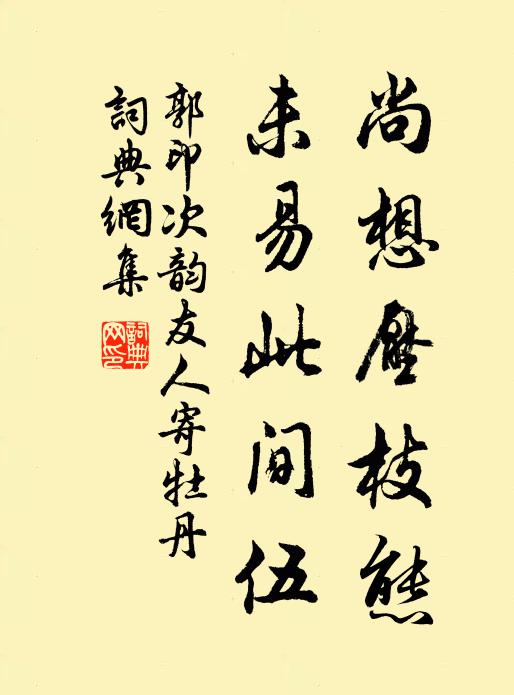 尚想壓枝態
未易此間伍
郭印次韵友人寄牡丹
詞典網集
詞典網印